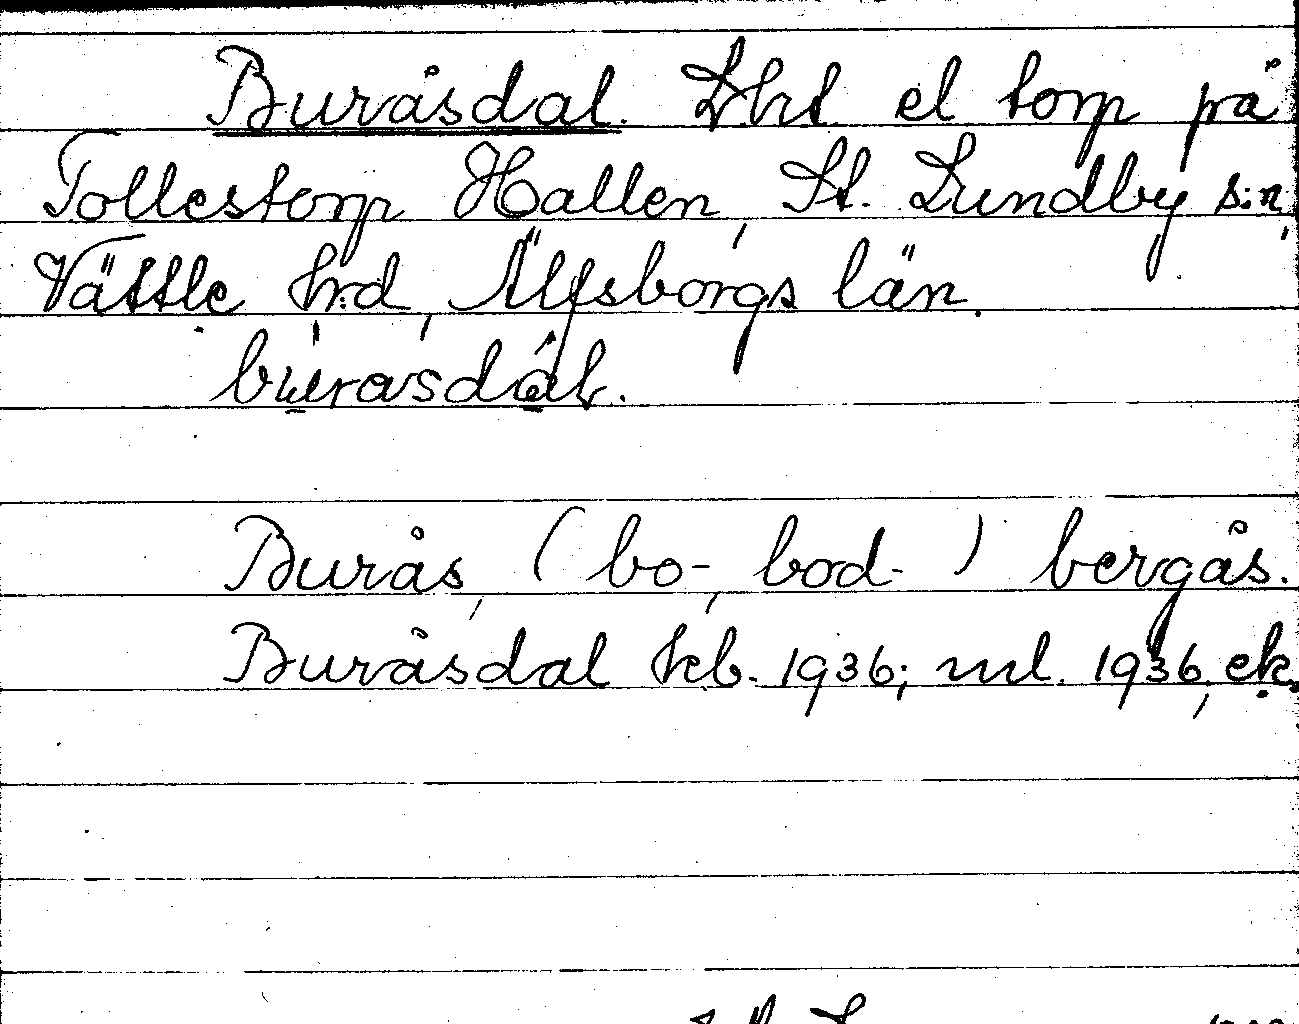 Buråsdal. Lht. el torp på
Tollestorp Hallen, St. Lundby s:n,
Vättle h:d, Älfsborgs län.
Burås, (bo-, bod- ) bergås.
Buråsdal kb. 1936; ml. 1936, ek.